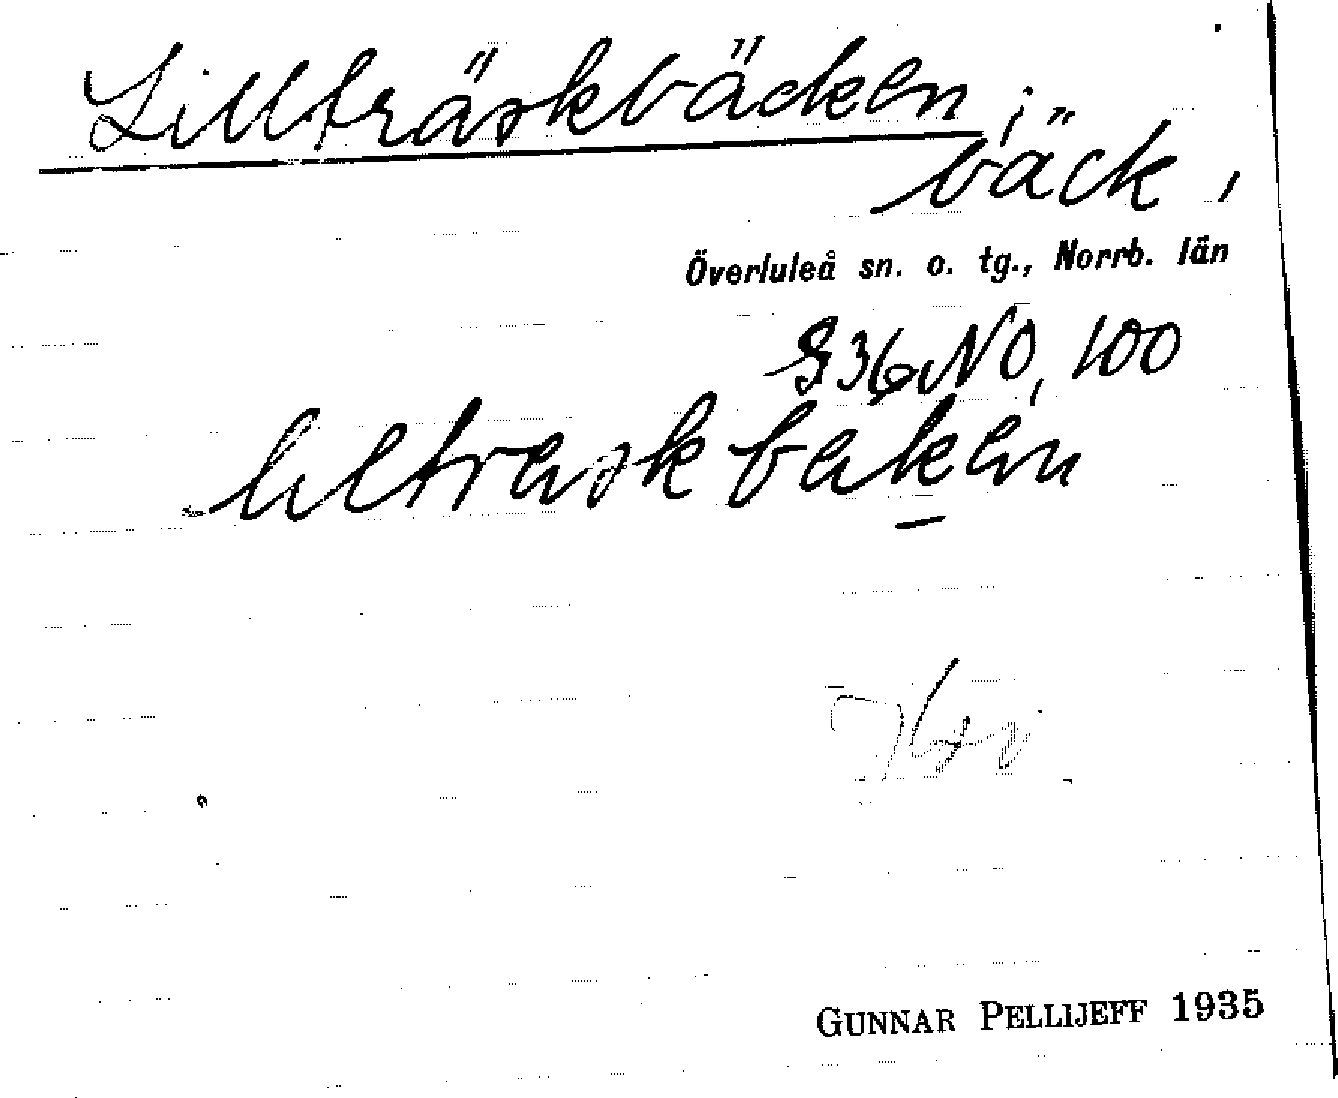 Lillträskbäcken;
bäck,
Överluleå sn. o. tg., Norrb. län
G 36 NO, 100
lιltreskbekɛn
GUNNAR PELLIJEFF 1935